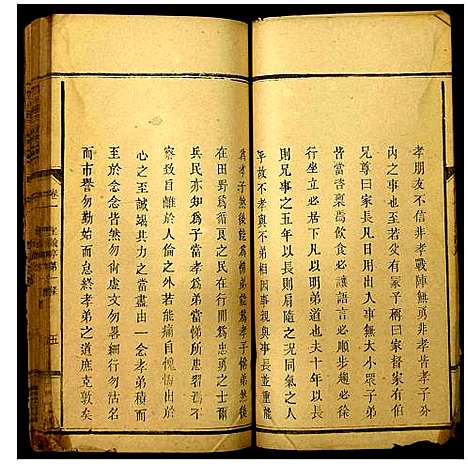 孝朋友不信非孝戰陣無勇非孝皆孝子分
內之事也至若父有冢子稱曰家督家有伯
兄尊曰家長凡日用出入事無大小眾子弟
皆當咨稟焉飲食必讓語言必順步趨必徐
行坐立必居下凡以明弟道也夫十年以長
則兄事之五年以長則肩隨之況同氣之人
乎故不孝與不弟相因事親與事長並重能
為孝子然後能為悌弟能為孝子悌弟然後
在田野為循良之民在行間為忠勇之士爾
兵民亦知為子當孝為弟當悌所患習焉不
察致自離於人倫之外若能痛自愧悔出於
心之至誠竭其力之當盡由一念孝弟積而
至於念念皆然勿尚虛文勿畧細行勿沽名
而市譽勿勤始而怠終孝弟之道庶克敦矣
卷一
五